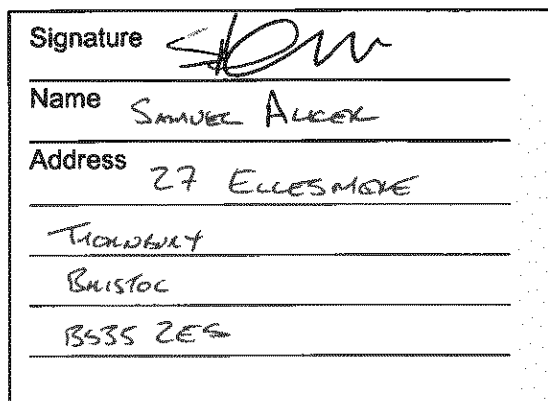 Signature
Name SAMUEL ALKER
Address 27 ELLESMERE
THORNBURY
BRISTOL
BS35 2ES